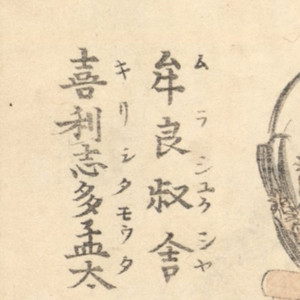 牟良叔舎
ムラシユクシヤ
喜利志多孟太
キリシタモウタ